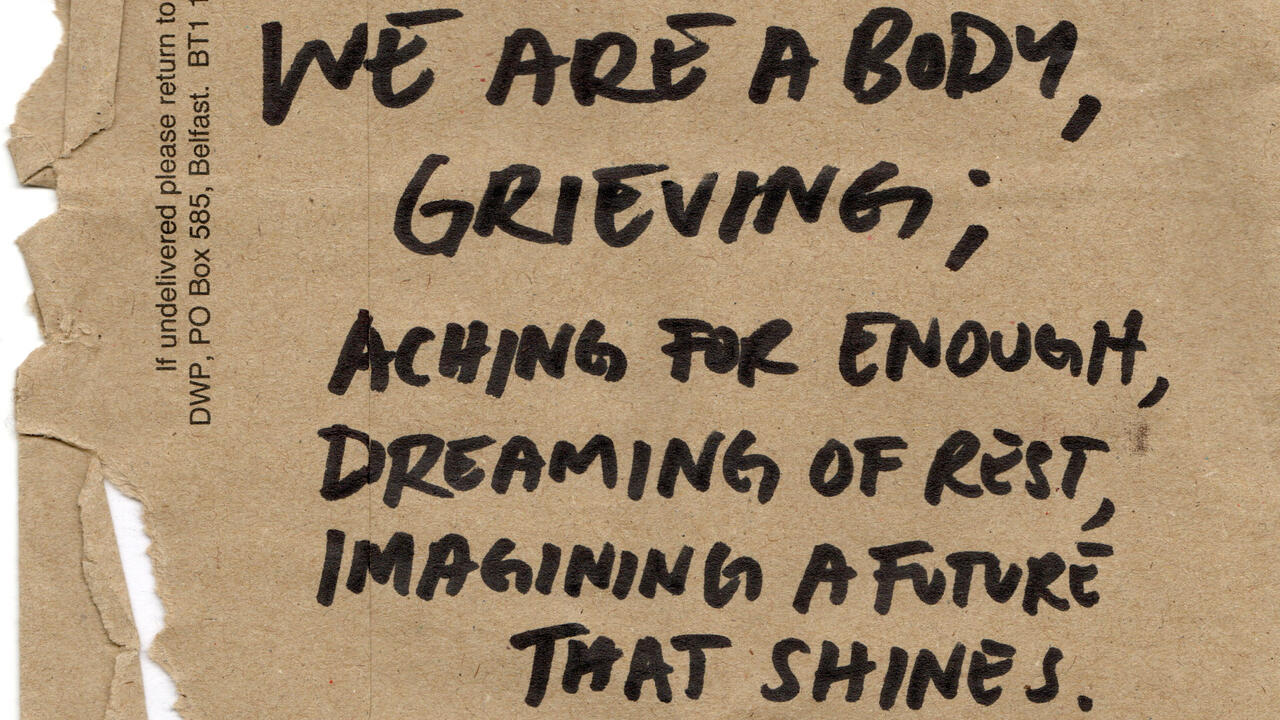 If undelivered please return to
DWP, PO Box 585, Belfast. BT1
WE ARE A BODY,
GRIEVING;
ACHING FOR ENOUGH,
DREAMING OF REST,
IMAGINING A FUTURE
THAT SHINES.